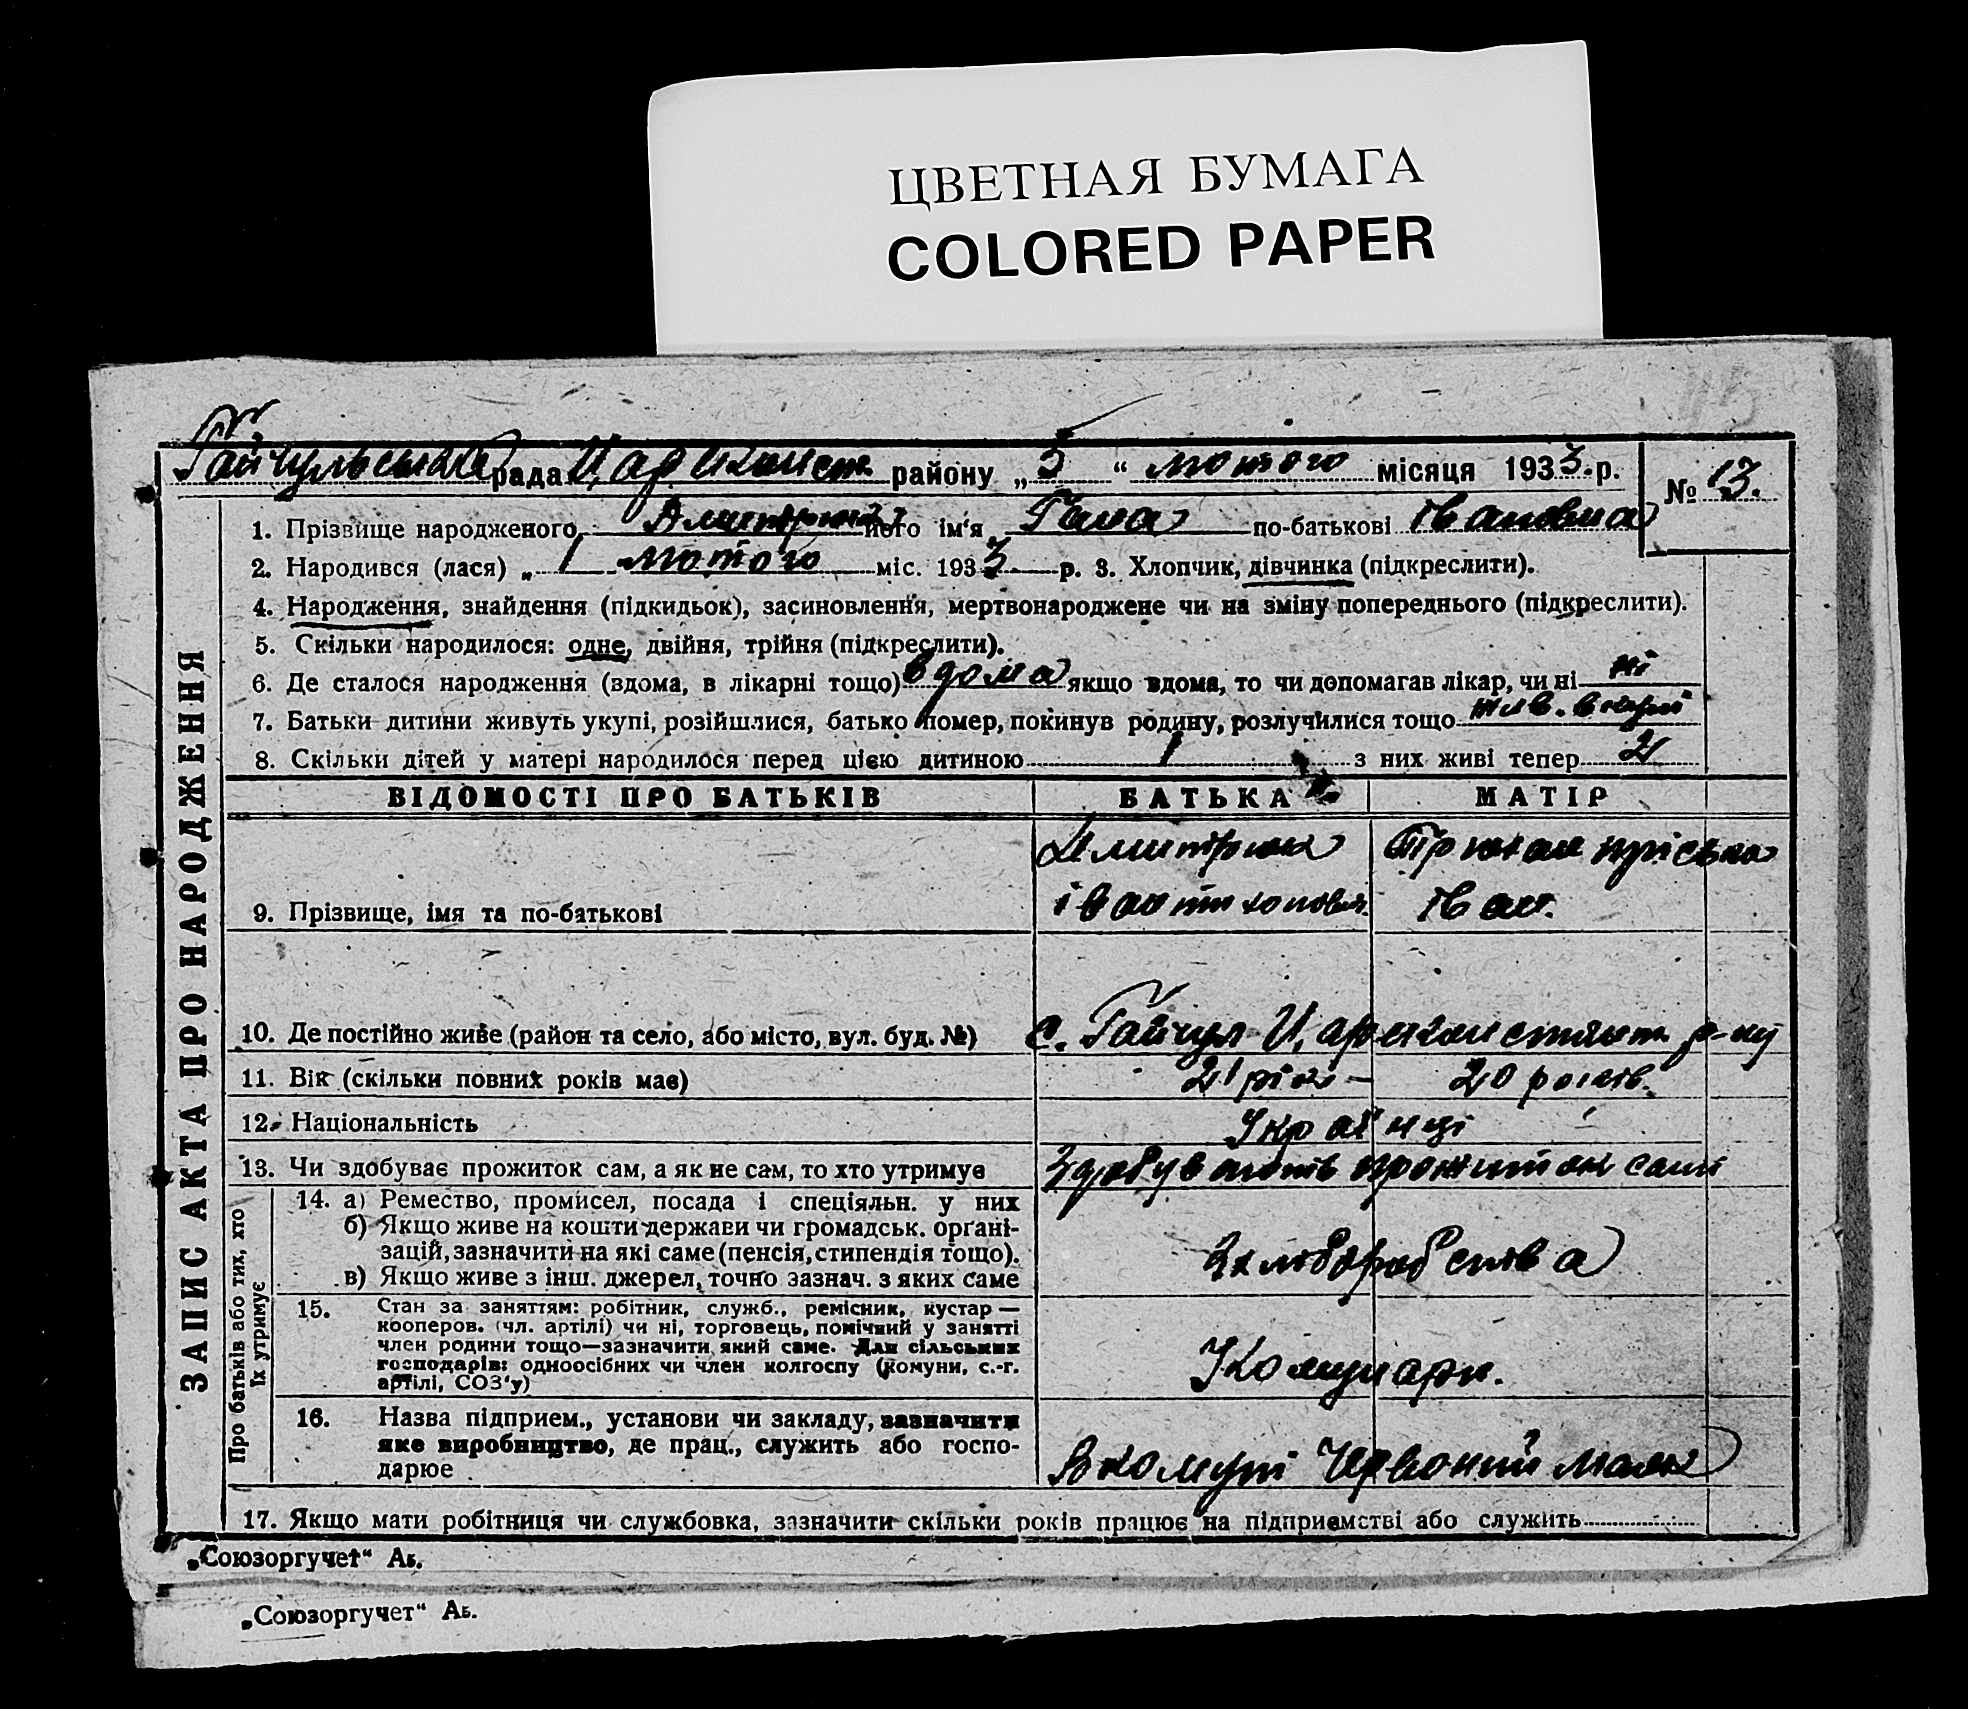 ЦВЕТНАЯ БУМАГА
COLORED PAPER
Гайчульська рада Царекконст. району „ 3 “ лютого місяця 1933. р. № 13.
1. Прізвище народженого Дмитрюк його ім'я Гана по-батькові Івановна
2. Народився (лася) „ 1 лютого міс. 1933. р. 3. Хлопчик, дівчинка (підкреслити).
4. Народження, знайдення (підкидьок), засиновлення, мертвонароджене чи на зміну попереднього (підкреслити).
5. Скільки народилося: одне, двійня, трійня (підкреслити).
6. Де сталося народження (вдома, в лікарні тощо) вдома якщо вдома, то чи допомагав лікар, чи ні ні
7. Батьки дитини живуть укупі, розійшлися, батько помер, покинув родину, розлучилися тощо жив. вкупі
8. Скільки дітей у матері народилося перед цією дитиною 1 з них живі тепер 2
ЗАПИС АКТА ПРО НАРОДЖЕННЯ
ВІДОМОСТІ ПРО БАТЬКІВ БАТЬКА МАТІР
Дмитрюк
9. Прізвище, імя та по-батькові Іван Іван.
10. Де постійно живе (район та село, або місто, вул. буд. №) с. Гайчул р-ну
11. Вік (скільки повних років має) 21 рік – 20 років.
12. Національність Українці
13. Чи здобуває прожиток сам, а як не сам, то хто утримує Здобувають прожиток сами
Про батьків або тих, хто їх утримує
14. а) Ремество, промисел, посада і спеціяльн. у них
б) Якщо живе на кошти держави чи громадськ. органі-
зацій, зазначити на які саме (пенсія, стипендія тощо).
в) Якщо живе з інш. джерел, точно зазнач. з яких саме
З хліборобства
15. Стан за заняттям: робітник, служб., ремісник, кустар —
кооперов. (чл. артілі) чи ні, торговець, помічний у занятті
член родини тощо—зазначити який саме. Для сільських
господарів: одноосібних чи член колгоспу (комуни, с.-г.
артілі, СОЗ'у)
Комунари.
16. Назва підприєм., установи чи закладу, зазначити
яке виробництво, де прац., служить або госпо-
дарює
В комуні Червоний маяк
17. Якщо мати робітниця чи службовка, зазначити скільки років працює на підприємстві або служить
„Союзоргучет“ Аь.
„Союзоргучет“ Аь.